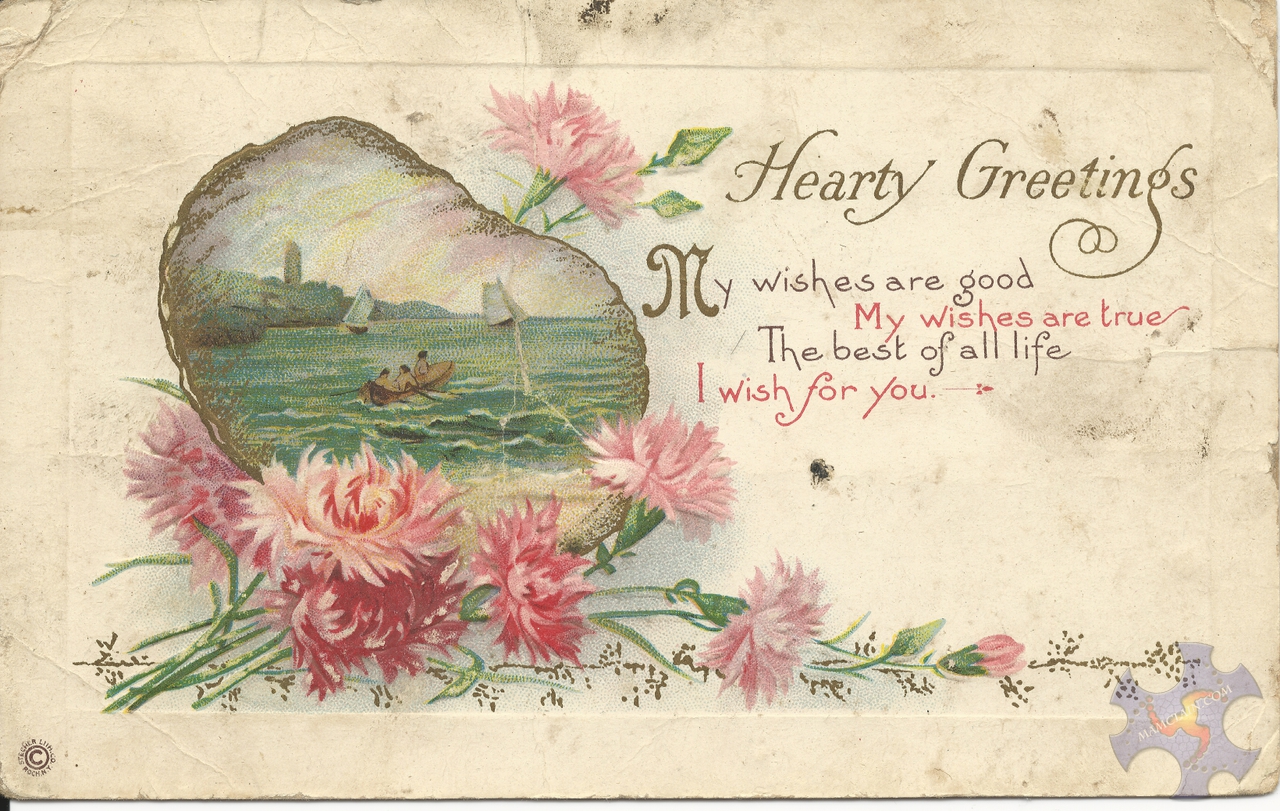 Hearty Greetings
My wishes are good
My wishes are true
The best of all life
I wish for you.
STECHER LITH. CO.
ROCH. N.Y.
©